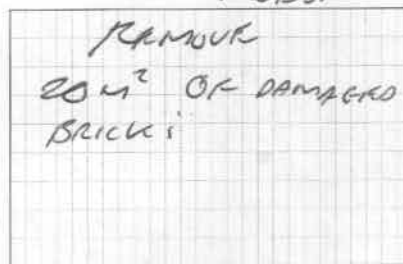 REMOVE
20m² OF DAMAGED
BRICK;